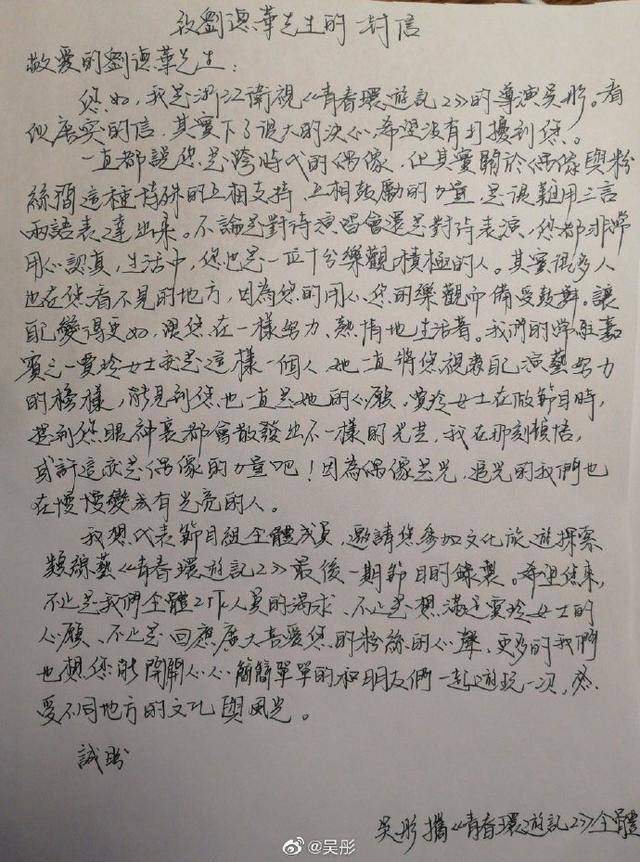 致劉德華先生的一封信
敬愛的劉德華先生：
您好，我是浙江衛視《青春環遊記2》的導演吴彤。看
似唐突的信，其實下了很大的決心，希望沒有打擾到您。
一直都說您是跨時代的偶像，但其實關於偶像與粉
絲間這種特殊的互相支持、互相鼓勵的力量，是很難用三言
兩語表達出來。不論是對待演唱會還是對待表演，您都非常
用心認真，生活中，您也是一位十分樂觀積極的人。其實很多人
也在您看不見的地方，因為您的用心您的樂觀而備受鼓舞。讓
自己變得更好，跟您在一樣努力、熱情地生活着。我們的常駐嘉
賓之一賈玲女士就是這樣一個人，她一直將您視為自己演藝努力
的榜樣，能見到您也一直是她的心願，賈玲女士在做節目時，
提到您眼神裏都會散發出不一樣的光芒，我在那刻頓悟，
或許這就是偶像的力量吧！因為偶像是光，追光的我們也
在慢慢變成有光亮的人。
我想代表節目組全體成員，邀請您參加文化旅遊探索
類綜藝《青春環遊記2》最後一期節目的錄製。希望您來，
不止是我們全體工作人員的渴求、不止是想滿足賈玲女士的
心願、不止是回應廣大喜愛您的粉絲的心聲，更多的我們
也想您能開開心心、簡簡單單的和朋友們一起遊玩一次，感
受不同地方的文化與風光。
誠盼
吴彤攜《青春環遊記2》全體
@吴彤